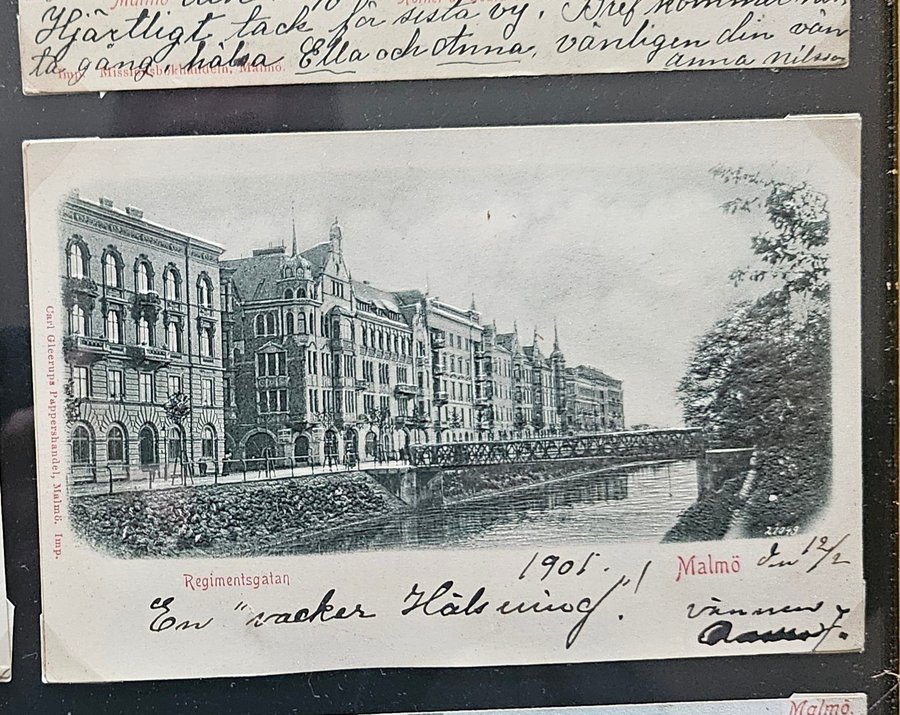 Malmö den
Hjärtligt tack för sista vy. Bref kommer
ta gång, hälsa Ella och Anna, vänligen din vän
Imp. Missionsbokhandeln, Malmö.
Anna Nilsson
Carl Gleerups Pappershandel, Malmö. Imp.
22053
Regimentsgatan
1901.
Malmö den 12/2
En "vacker Hälsning"!
vännen
Malmö.